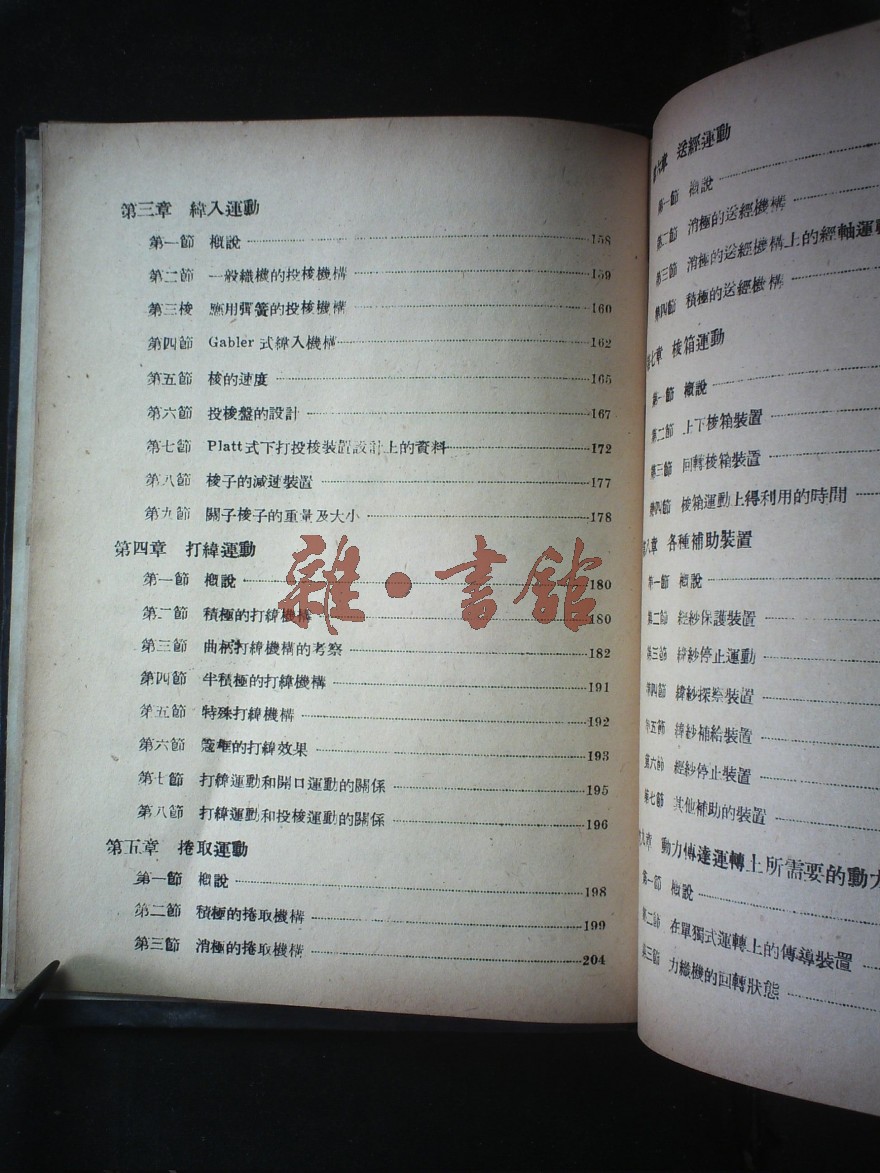 第三章 緯入運動
第一節 概說 158
第二節 一般織機的投梭機構 159
第三梭 應用彈簧的投梭機構 160
第四節 Gabler 式緯入機構 162
第五節 梭的速度 165
第六節 投梭盤的設計 167
第七節 Platt 式下打投梭裝置設計上的資料 172
第八節 梭子的減速裝置 177
第九節 關子梭子的重量及大小 178
第四章 打緯運動
第一節 概說 180
第二節 積極的打緯機構 180
第三節 曲柄打緯機構的考察 182
第四節 半積極的打緯機構 191
第五節 特殊打緯機構 192
第六節 筬框的打緯效果 193
第七節 打緯運動和開口運動的關係 195
第八節 打緯運動和投梭運動的關係 196
第五章 捲取運動
第一節 概說 198
第二節 積極的捲取機構 199
第三節 消極的捲取機構 204
雜·書館
第六章 送經運動
第一節 概說
第二節 消極的送經機構
第三節 消極的送經機構上的經軸運
第四節 積極的送經機構
第七章 梭箱運動
第一節 概說
第二節 上下梭箱裝置
第三節 回轉梭箱裝置
第四節 梭箱運動上得利用的時間
第八章 各種補助裝置
第一節 概說
第二節 經紗保護裝置
第三節 緯紗停止運動
第四節 緯紗探察裝置
第五節 緯紗補給裝置
第六節 經紗停止裝置
第七節 其他補助的裝置
第九章 動力傳達運轉上所需要的動力
第一節 概說
第二節 在單獨式運轉上的傳導裝置
第三節 力織機的回轉狀態